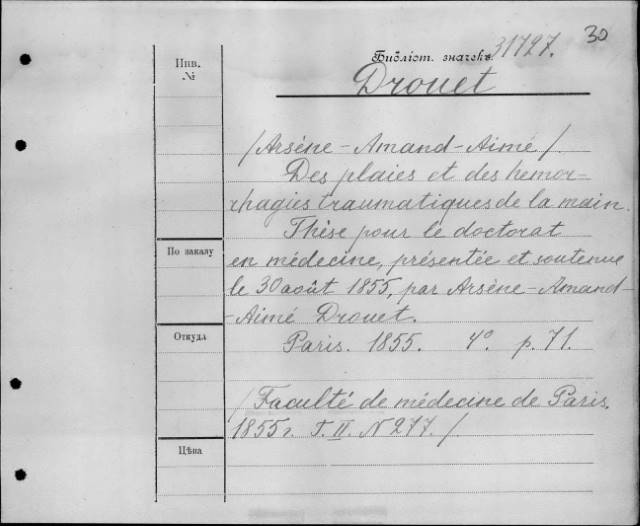 30
Инв.
№
Библіот. значекъ 31727.
Drouet
/Arsène-Amand-Aimé/.
Des plaies et des hemor-
rhagies traumatiques de la main.
Thèse pour le doctorat
По заказу
en médecine, présentée et soutenue
le 30 août 1855, par Arsène-Amand-
-Aimé Drouet.
Откуда
Paris. 1855. 4º. p. 71.
/Faculté de médecine de Paris.
1855г. T. II. N 277./.
Цѣна